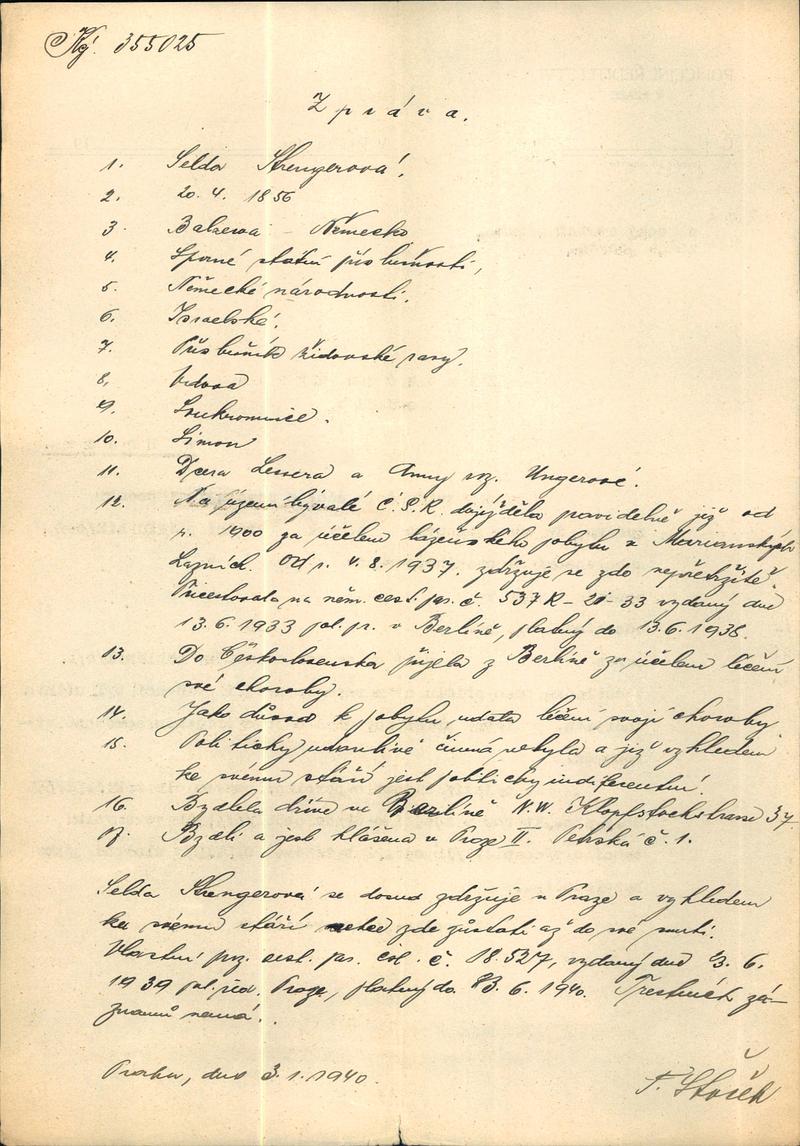 355025
Zpráva.
1. Selda Strengerová,
2. 20. 4. 1856
3. Německo
4. Sporné státní příslušnosti,
5. Německé národnosti.
6. Israelské.
7. Příslušník židovské rasy.
8. Vdova
9. Soukromnice.
10. Simon
11. Dcera Lessera a Anny roz. Ungerové.
12. Na území bývalé Č.S.R. dojížděla pravidelně již od
r. 1900 za účelem lázeňského pobytu v Mariánských
Lazních. Od r. 4. 8. 1937. zdržuje se zde nepřetržitě.
Přicestovala na něm. cest. pas. č. 537 R - 21 - 33 vydaný dne
13. 6. 1933 pol. pr. v Berlíně, platný do 13. 6. 1938.
13. Do Československa přijela z Berlíně za účelem léčení
své choroby.
14. Jako důvod k pobytu udala léčení svojí choroby
15. Politicky činná nebyla a již vzhledem
ke svému stáří jest politicky indiferentní.
16. Bydlela dříve ve Berlíně N.W. Klopfstockstrasse 37.
17. Bydlí a jest hlášena v Praze II. Petrská č. 1.
Selda Strengerová se dosud zdržuje v Praze a vzhledem
ku svému stáří zde zůstati až do své smrti.
Vlastní proz. cest. pas. čsl. č. 18.527, vydaný dne 3. 6.
1939 pol. řed. Praze, platný do 3. 6. 1940. Trestních zá-
znamů nemá.
Praha, dne 3. 1. 1940.